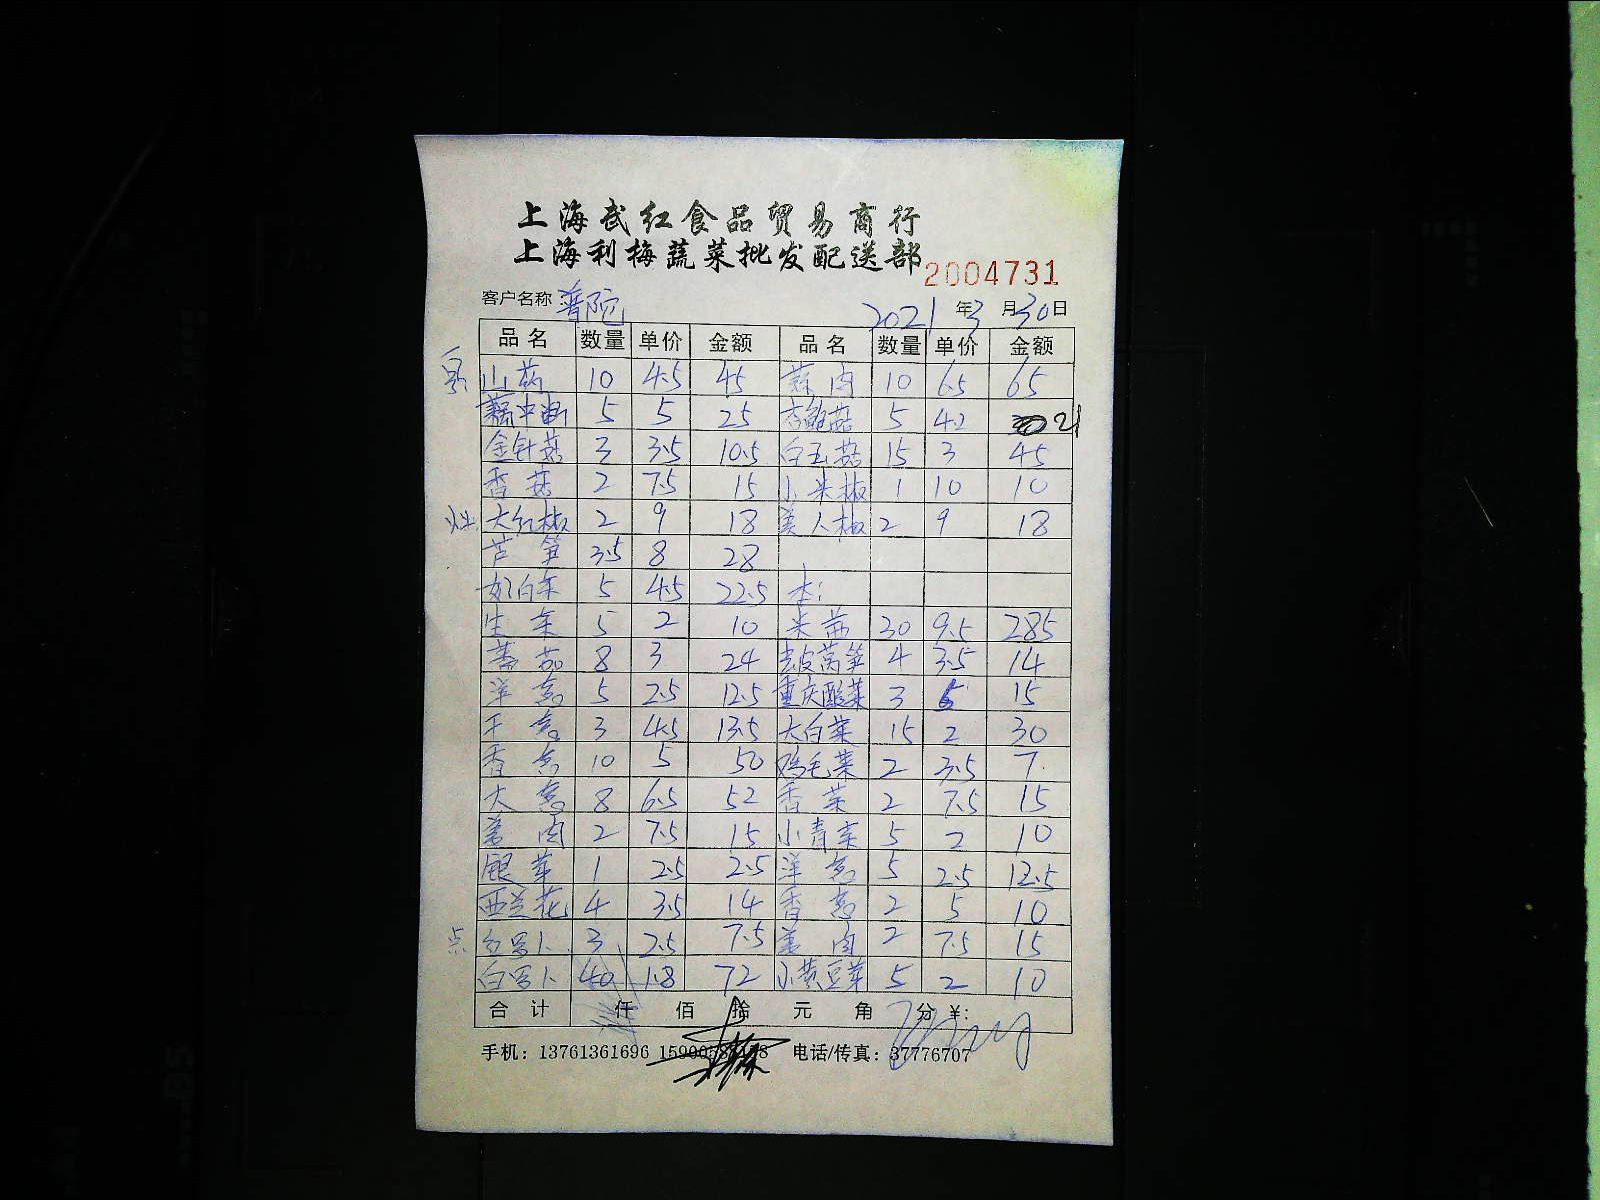 上海武红食品贸易商行
上海利梅蔬菜批发配送部
2004731
客户名称：普陀 2021年3月30日
品名 数量 单价 金额 品名 数量 单价 金额
山药 10 4.5 45 蒜肉 10 6.5 65
藕中断 5 5 25 杏鲍菇 5 4.2 21
金针菇 3 3.5 10.5 白玉菇 15 3 45
香菇 2 7.5 15 小米椒 1 10 10
大红椒 2 9 18 美人椒 2 9 18
芦笋 3.5 8 28
5 4.5 22.5 本：
生菜 5 2 10 米苋 30 9.5 285
番茄 8 3 24 去皮莴笋 4 3.5 14
洋葱 5 2.5 12.5 重庆酸菜 3 5 15
干葱 3 4.5 13.5 大白菜 15 2 30
香葱 10 5 50 鸡毛菜 2 3.5 7
大葱 8 6.5 52 香菜 2 7.5 15
姜肉 2 7.5 15 小青菜 5 2 10
银芽 1 2.5 2.5 洋葱 5 2.5 12.5
西兰花 4 3.5 14 香葱 2 5 10
红罗卜 3 2.5 7.5 姜肉 2 7.5 15
白罗卜 40 1.8 72 小黄豆芽 5 2 10
合计 仟 佰 拾 元 角 分 ¥：
手机：13761361696 电话/传真：37776707